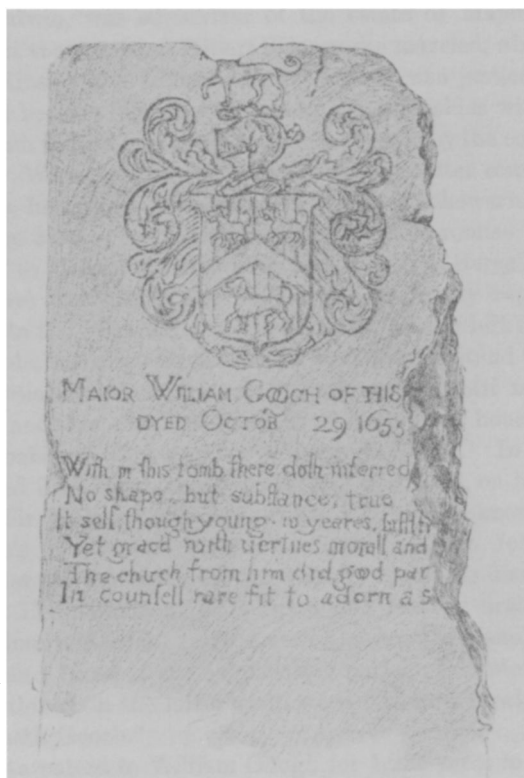 MAIOR WILLIAM GOOCH OF THIS
DYED OCTOBR 29 1655
With in this tomb there doth interred
No shape but substance, true
It self though young in yeares,
Yet grac'd with vertues morall and
The church from him did good par
In counsell rare fit to adorn a S